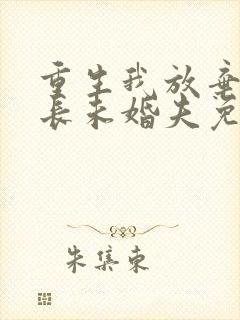 重生我放弃
长未婚夫免
朱集東